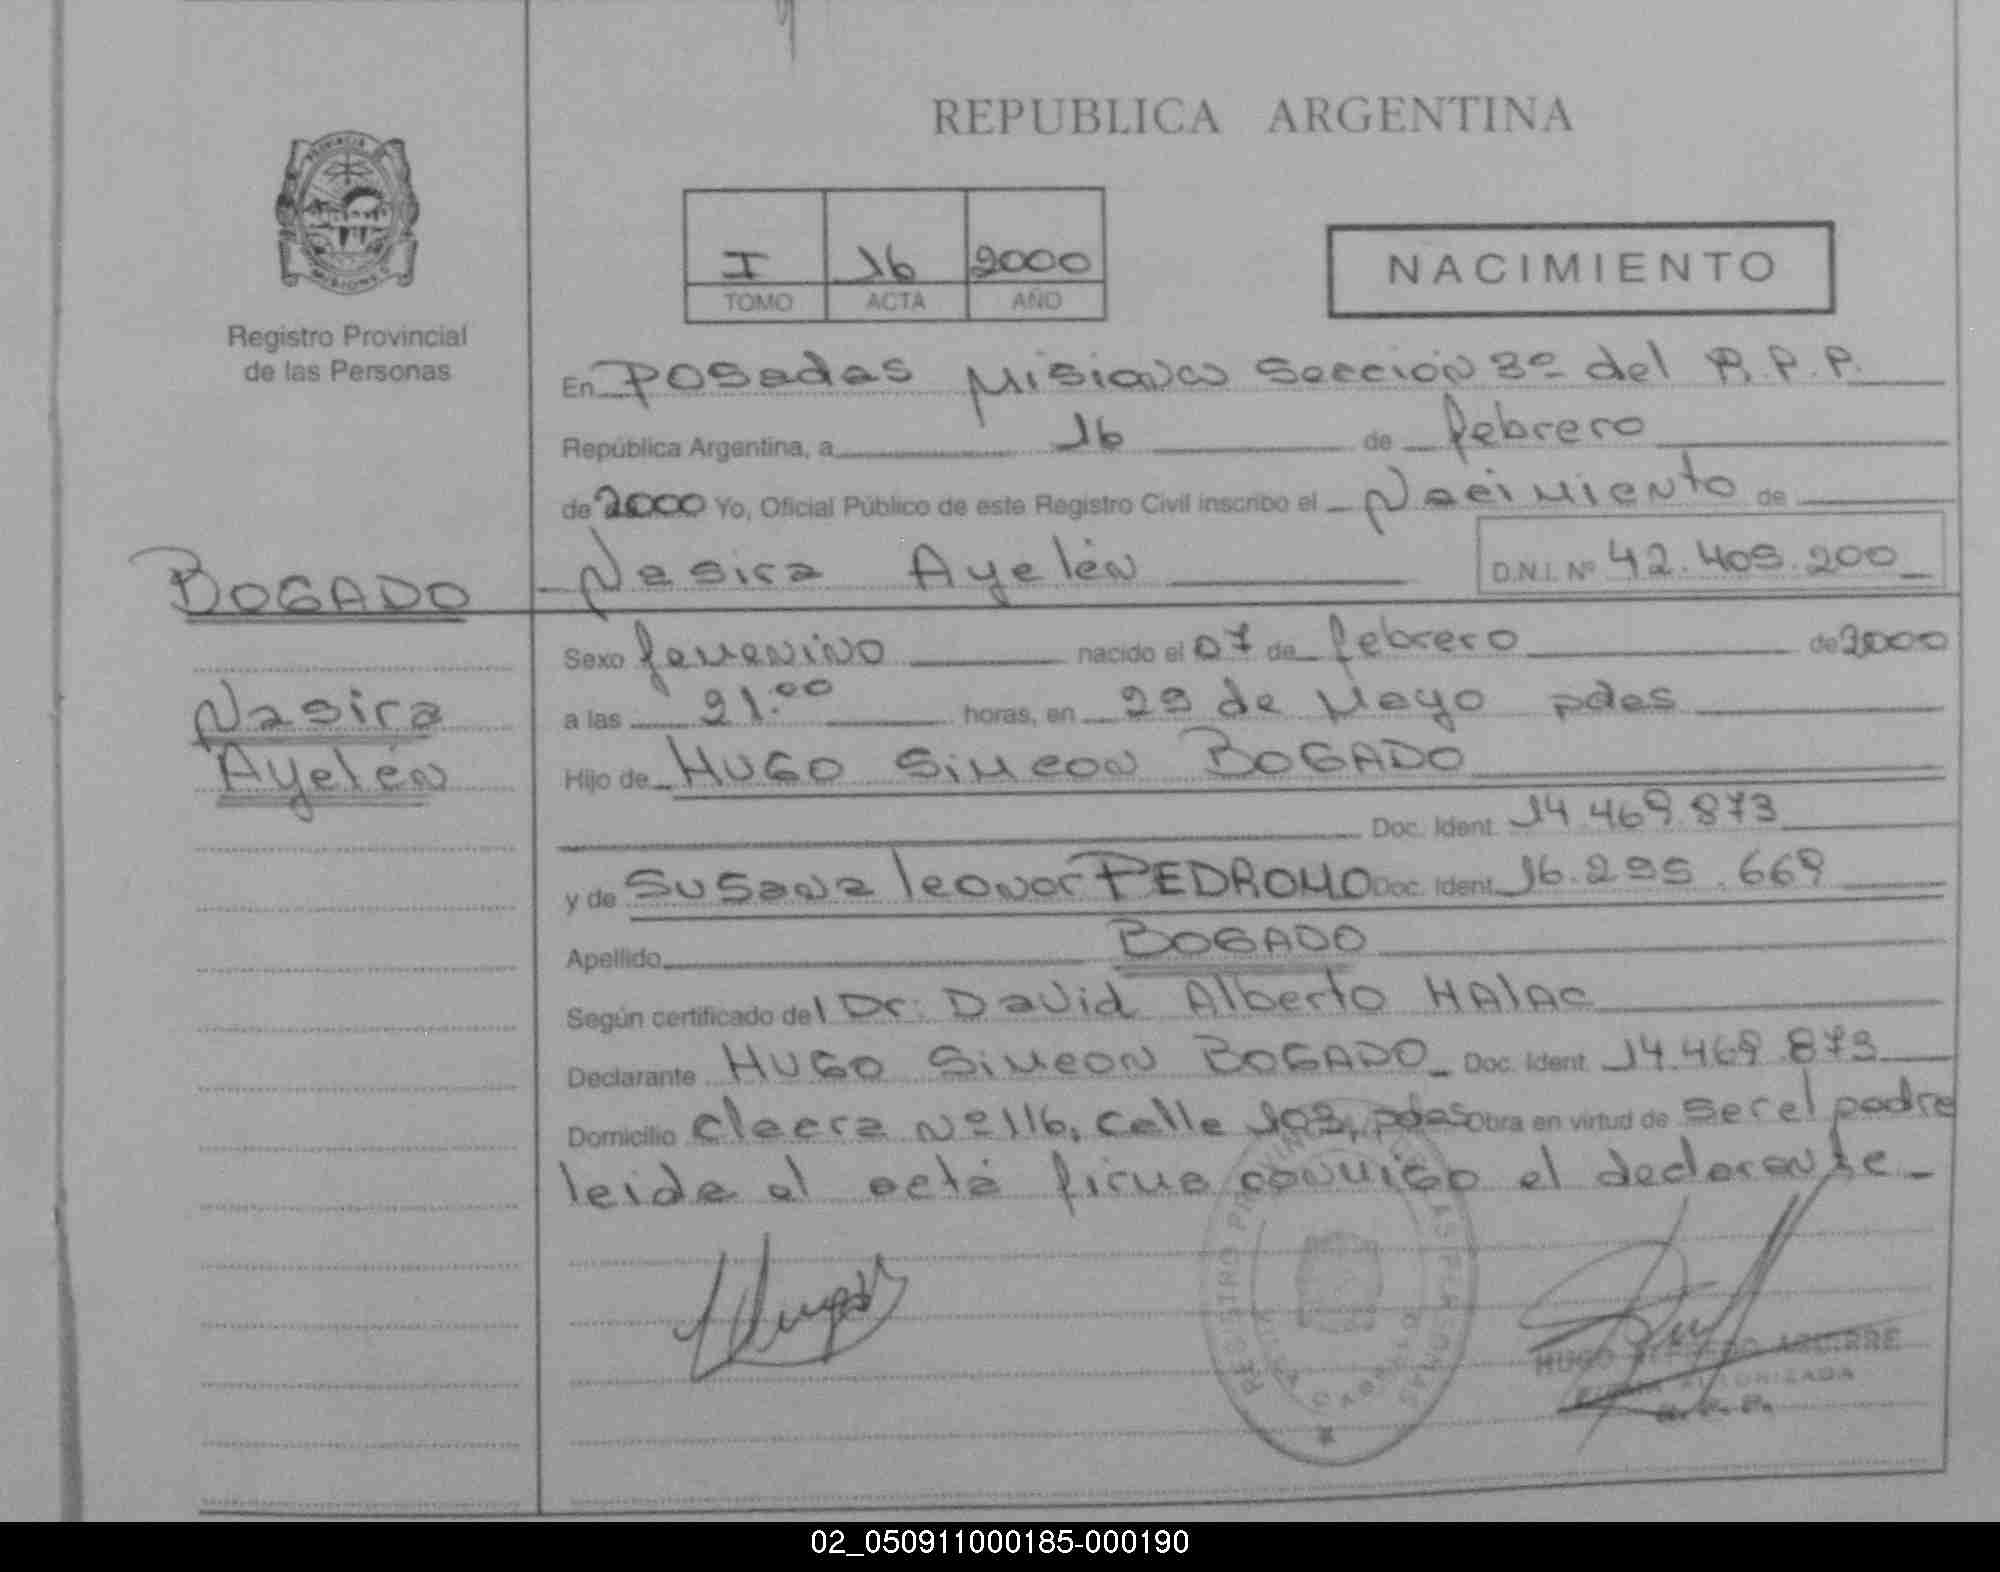 REPUBLICA ARGENTINA
PROVINCIA
MISIONES
Registro Provincial
de las Personas
I 16 2000
TOMO ACTA AÑO
NACIMIENTO
En Posadas Misiones Sección 3º del R.P.P.
República Argentina, a 16 de febrero
de 2000 Yo, Oficial Público de este Registro Civil inscribo el Nacimiento de
BOGADO
Nasira Ayelén D.N.I. Nº 42.409.200
Sexo femenino nacido el 07 de febrero de 2000
Nasira
Ayelén
a las 21:00 horas, en 29 de Mayo pdas
Hijo de HUGO Simeon BOGADO
Doc. Ident. 14.469.873
y de Susana leonor PEDROMO Doc. Ident. 16.295.669
Apellido BOGADO
Según certificado del Dr: David Alberto HAlAC
Declarante HUGO Simeon BOGADO Doc. Ident. 14.469.873
Domicilio chacra Nº 116, calle 103, pdas Obra en virtud de ser el padre
leida el acta firma conmigo el declarante
REGISTRO PROVINCIAL DE LAS PERSONAS
HUGO ALFREDO AGUIRRE
FIRMA AUTORIZADA
R. P. P.
02_050911000185-000190